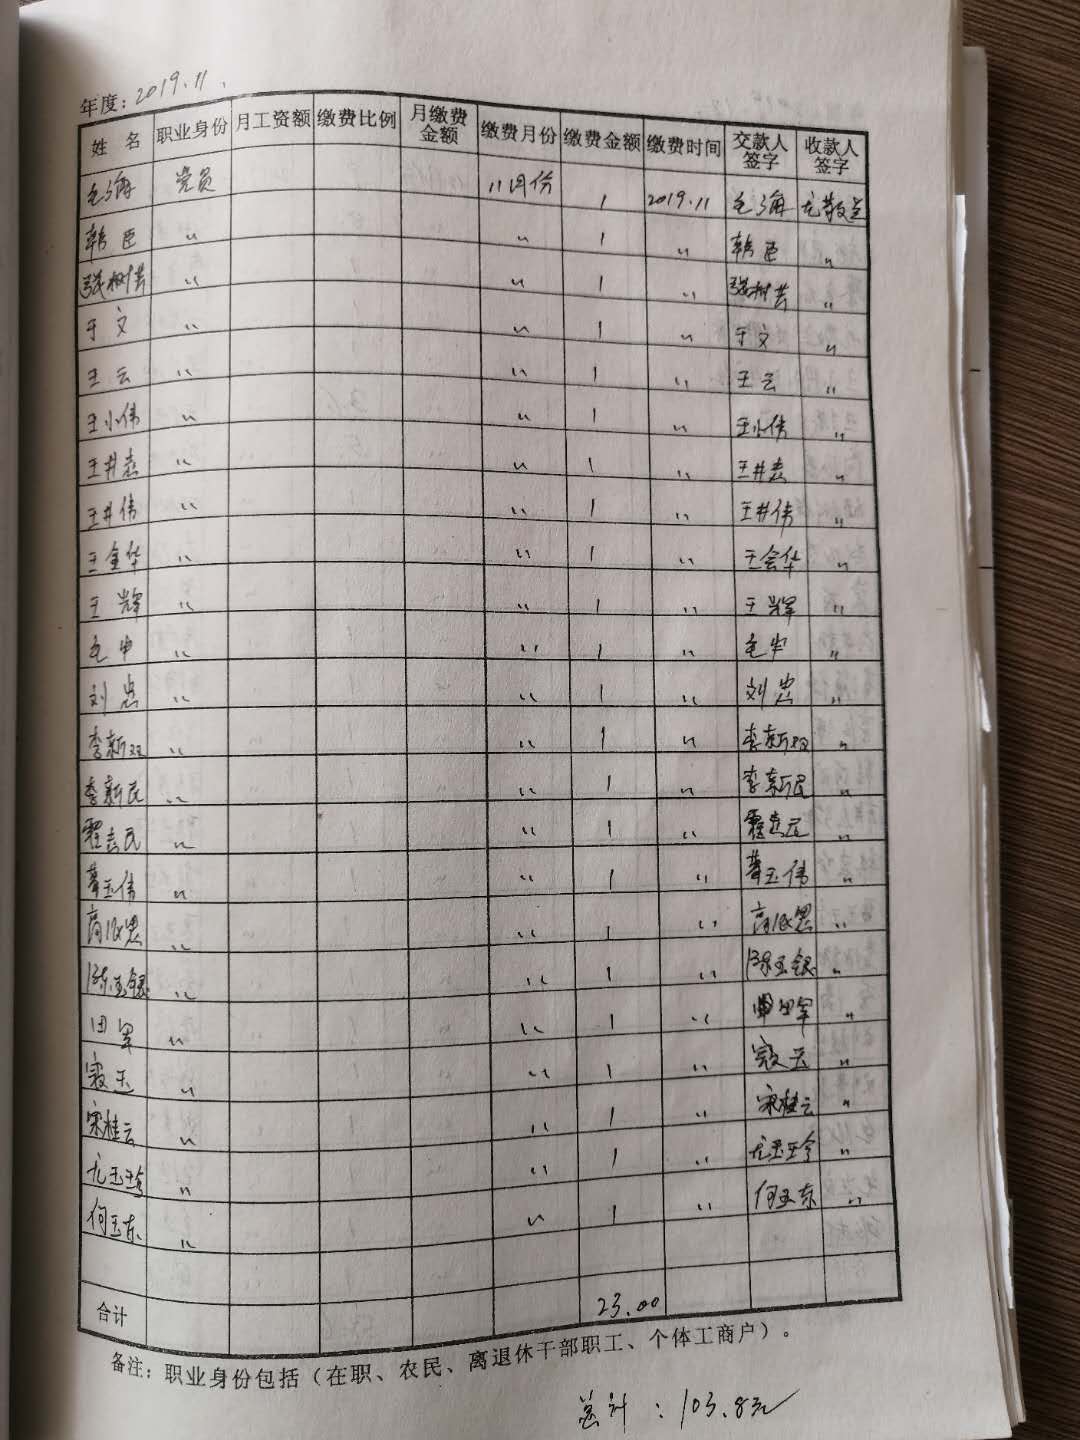 年度：2019.11.
姓 名 职业身份 月工资额 缴费比例 月缴费金额 缴费月份 缴费金额 缴费时间 交款人签字 收款人签字
党员 11月份 1 2019.11
韩臣 〃 〃 1 〃 韩臣 〃
张树芸 〃 〃 1 〃 张树芸 〃
于文 〃 〃 1 〃 于文 〃
王云 〃 〃 1 〃 王云 〃
王小伟 〃 〃 1 〃 王小伟 〃
王井志 〃 〃 1 〃 王井志 〃
王井伟 〃 〃 1 〃 王井伟 〃
王金华 〃 〃 1 〃 王金华 〃
王辉 〃 〃 1 〃 王辉 〃
〃 〃 1 〃 〃
刘忠 〃 〃 1 〃 刘忠 〃
李新双 〃 〃 1 〃 李新双 〃
李新民 〃 〃 1 〃 李新民 〃
程志民 〃 〃 1 〃 程志民 〃
玉伟 〃 〃 1 〃 玉伟 〃
〃 〃 1 〃 〃
陈玉银 〃 〃 1 〃 陈玉银 〃
田军 〃 〃 1 〃 田军 〃
〃 〃 1 〃 〃
宋桂云 〃 〃 1 〃 宋桂云 〃
尤玉珍 〃 〃 1 〃 尤玉珍 〃
何玉东 〃 〃 1 〃 何玉东 〃
合计 23.00
备注：职业身份包括（在职、农民、离退休干部职工、个体工商户）。
总计：103.8元